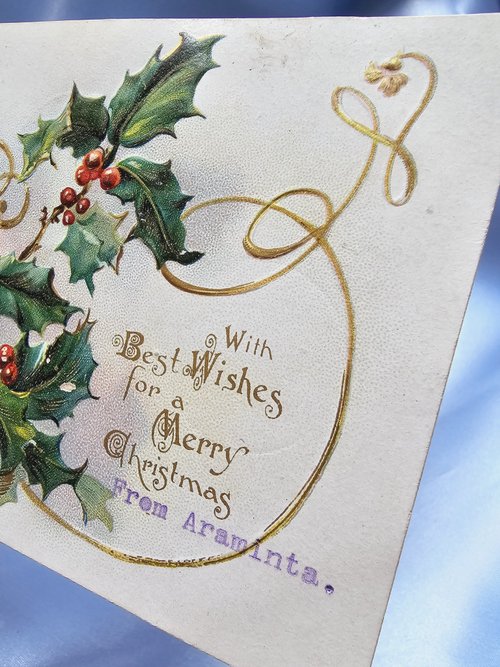 With
Best Wishes
for a
Merry
Christmas
From Araminta.